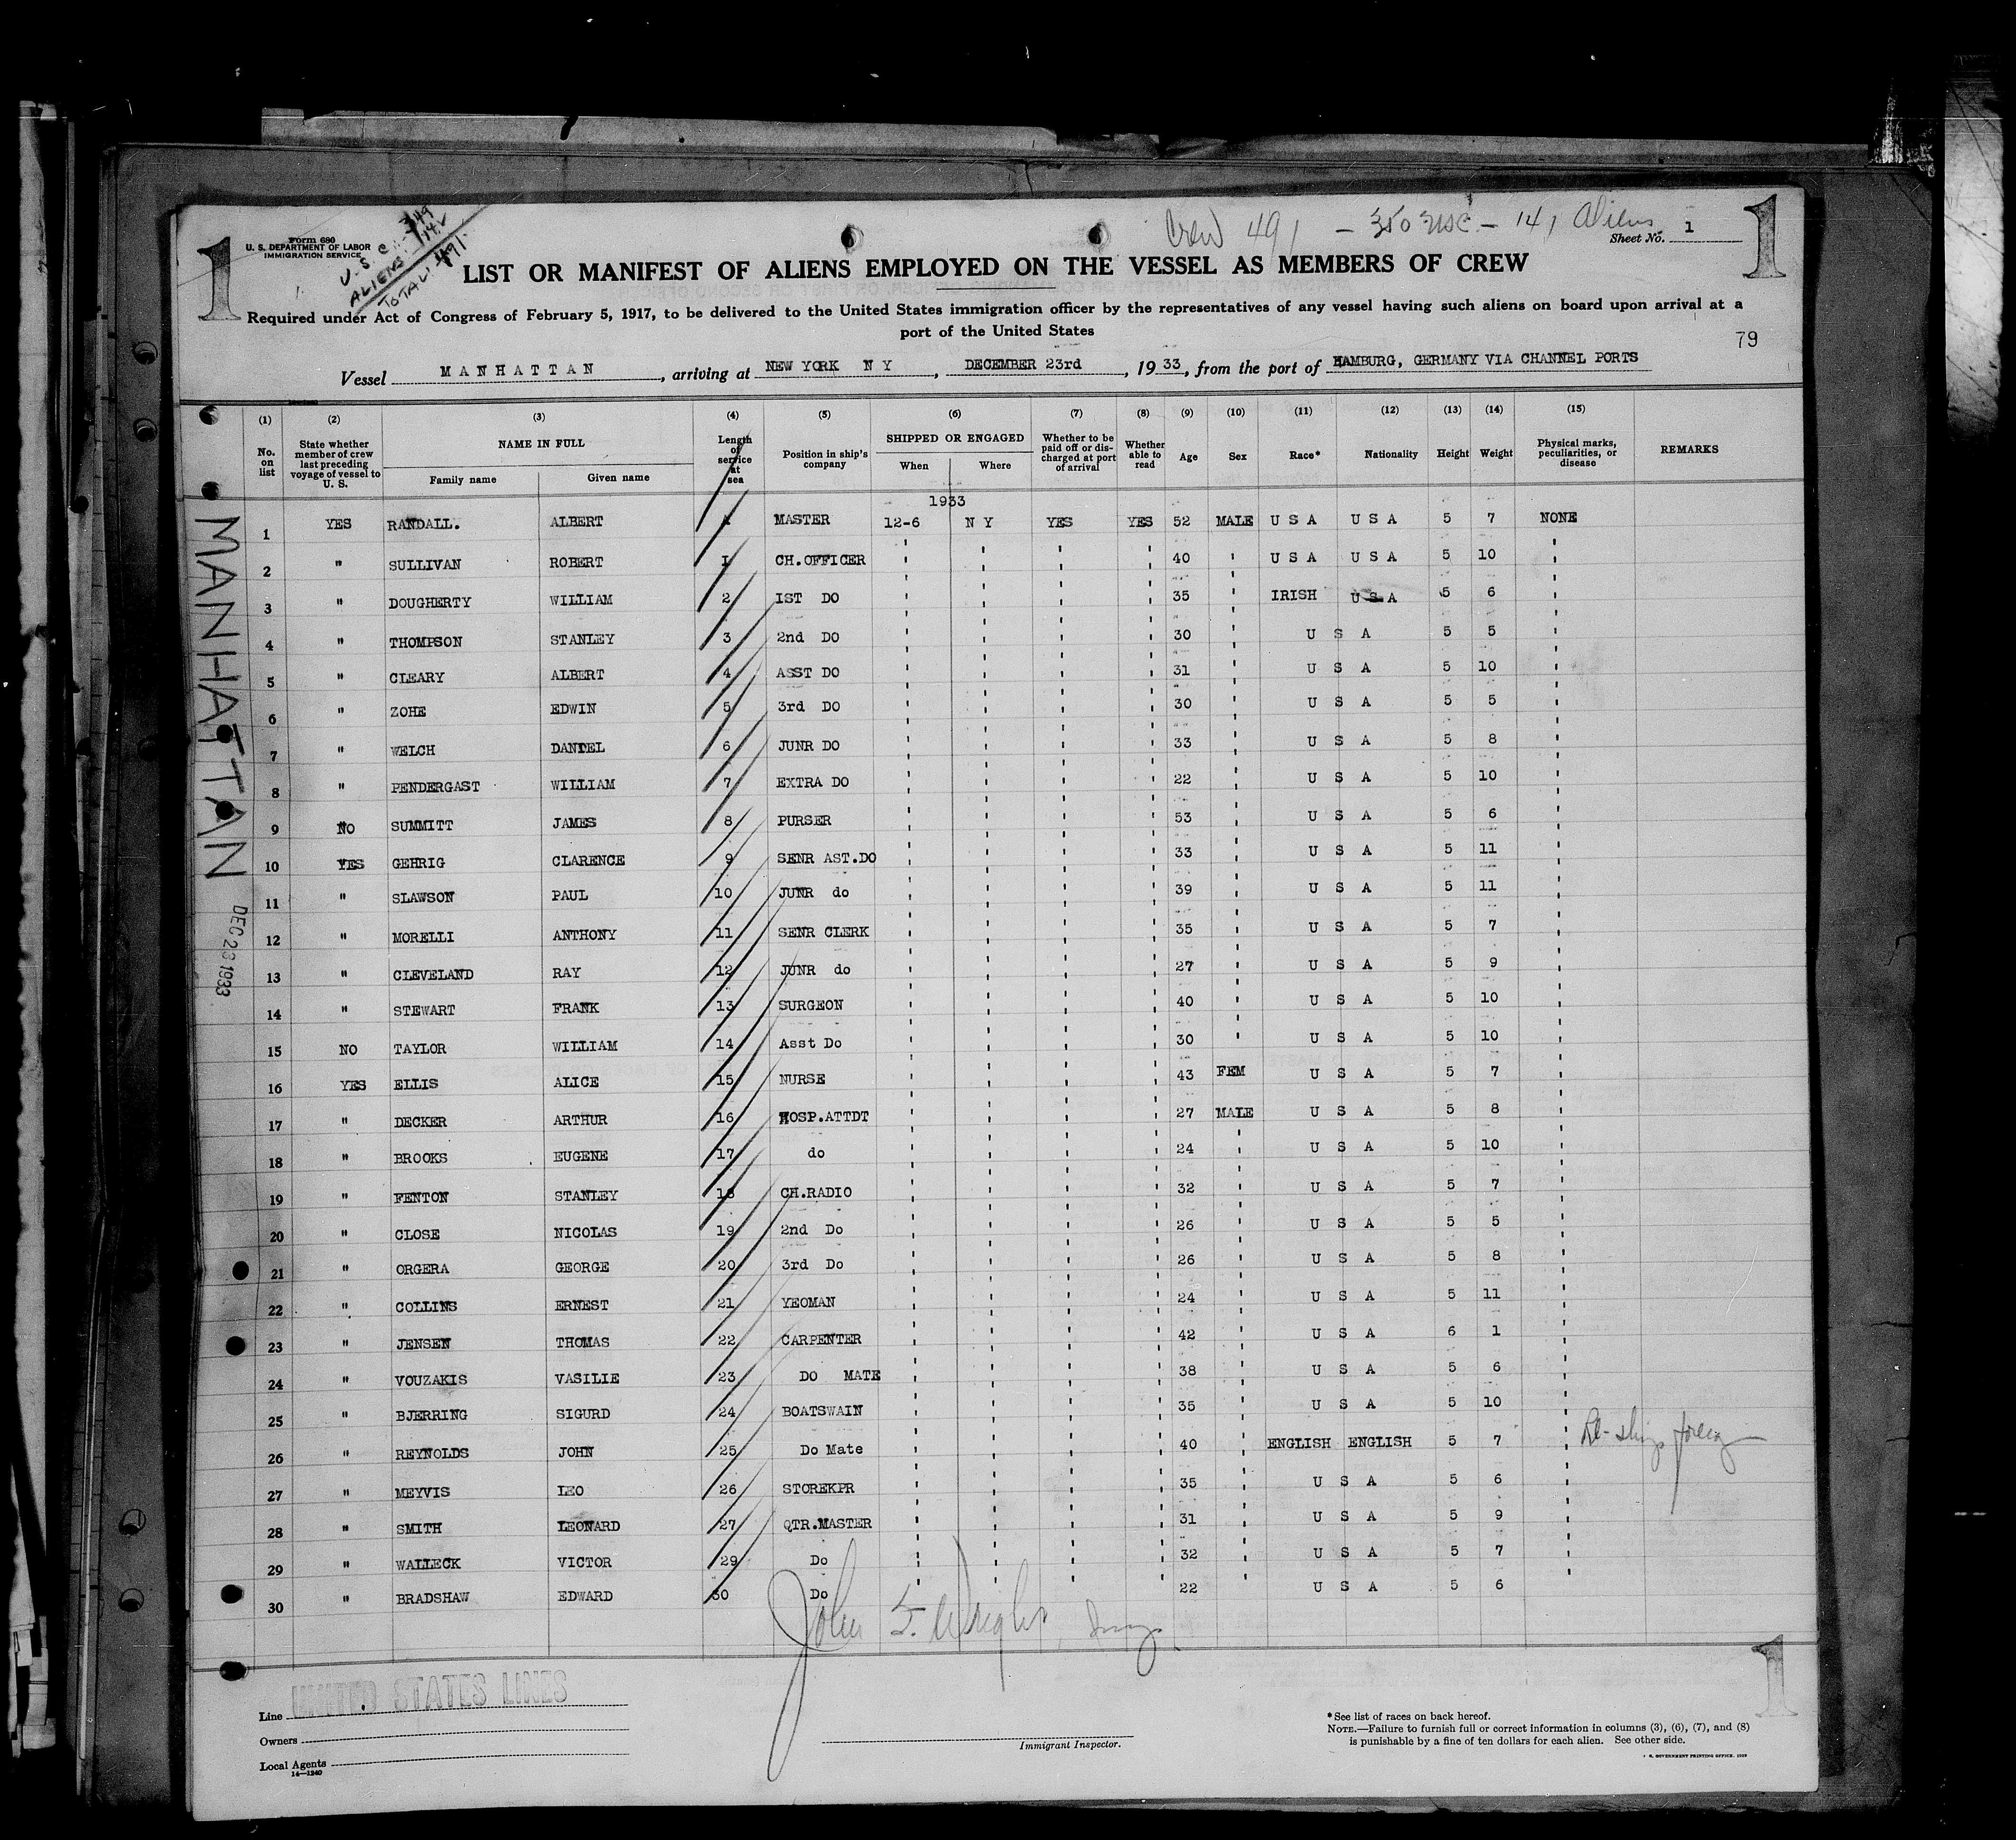 Crew 491 – 350 USC – 141 Aliens
1
1
Form 680
U. S. DEPARTMENT OF LABOR
IMMIGRATION SERVICE
U. S. C. : 349
ALIENS: 142
TOTAL: 491
Sheet No. 1
LIST OR MANIFEST OF ALIENS EMPLOYED ON THE VESSEL AS MEMBERS OF CREW
Required under Act of Congress of February 5, 1917, to be delivered to the United States immigration officer by the representatives of any vessel having such aliens on board upon arrival at a
port of the United States
79
Vessel MANHATTAN, arriving at NEW YORK N Y, DECEMBER 23rd, 1933, from the port of HAMBURG, GERMANY VIA CHANNEL PORTS
(1) (2) (3) (4) (5) (6) (7) (8) (9) (10) (11) (12) (13) (14) (15)
No. on list | State whether member of crew last preceding voyage of vessel to U. S. | NAME IN FULL Family name Given name | Length of service at sea | Position in ship's company | SHIPPED OR ENGAGED When Where | Whether to be paid off or discharged at port of arrival | Whether able to read | Age | Sex | Race* | Nationality | Height | Weight | Physical marks, peculiarities, or disease | REMARKS
1933
1 YES RANDALL. ALBERT MASTER 12-6 N Y YES YES 52 MALE U S A U S A 5 7 NONE
2 " SULLIVAN ROBERT I CH.OFFICER ' ' ' ' 40 ' U S A U S A 5 10 '
3 " DOUGHERTY WILLIAM 2 IST DO ' ' ' ' 35 ' IRISH U S A 5 6 '
4 " THOMPSON STANLEY 3 2nd DO ' ' ' ' 30 ' U S A 5 5 '
5 " CLEARY ALBERT 4 ASST DO ' ' ' ' 31 ' U S A 5 10 '
6 " ZOHE EDWIN 5 3rd DO ' ' ' ' 30 ' U S A 5 5 '
7 " WELCH DANIEL 6 JUNR DO ' ' ' ' 33 ' U S A 5 8 '
8 " PENDERGAST WILLIAM 7 EXTRA DO ' ' ' ' 22 ' U S A 5 10 '
9 NO SUMMITT JAMES 8 PURSER ' ' ' ' 53 ' U S A 5 6 '
10 YES GEHRIG CLARENCE 9 SENR AST.DO ' ' ' ' 33 ' U S A 5 11 '
11 " SLAWSON PAUL 10 JUNR do ' ' ' ' 39 ' U S A 5 11 '
12 " MORELLI ANTHONY 11 SENR CLERK ' ' ' ' 35 ' U S A 5 7 '
13 " CLEVELAND RAY 12 JUNR do ' ' ' ' 27 ' U S A 5 9 '
14 " STEWART FRANK 13 SURGEON ' ' ' ' 40 ' U S A 5 10 '
15 NO TAYLOR WILLIAM 14 Asst Do ' ' ' ' 30 ' U S A 5 10 '
16 YES ELLIS ALICE 15 NURSE ' ' ' ' 43 FEM U S A 5 7 '
17 " DECKER ARTHUR 16 HOSP.ATTDT ' ' ' ' 27 MALE U S A 5 8 '
18 " BROOKS EUGENE 17 do ' ' ' ' 24 ' U S A 5 10 '
19 " FENTON STANLEY 18 CH.RADIO ' ' ' ' 32 ' U S A 5 7 '
20 " CLOSE NICOLAS 19 2nd Do ' ' ' ' 26 ' U S A 5 5 '
21 " ORGERA GEORGE 20 3rd Do ' ' ' ' 26 ' U S A 5 8 '
22 " COLLINS ERNEST 21 YEOMAN ' ' ' ' 24 ' U S A 5 11 '
23 " JENSEN THOMAS 22 CARPENTER ' ' ' ' 42 ' U S A 6 1 '
24 " VOUZAKIS VASILIE 23 DO MATE ' ' ' ' 38 ' U S A 5 6 '
25 " BJERRING SIGURD 24 BOATSWAIN ' ' ' ' 35 ' U S A 5 10 '
26 " REYNOLDS JOHN 25 Do Mate ' ' ' ' 40 ' ENGLISH ENGLISH 5 7 ' Re-ship foreign
27 " MEYVIS LEO 26 STOREKPR ' ' ' ' 35 ' U S A 5 6 '
28 " SMITH LEONARD 27 QTR.MASTER ' ' ' ' 31 ' U S A 5 9 '
29 " WALLECK VICTOR 29 Do ' ' ' ' 32 ' U S A 5 7 '
30 " BRADSHAW EDWARD 30 Do 22 U S A 5 6
MANHATTAN
DEC 23 1933
John S. Wright,
Line UNITED STATES LINES
Owners
Local Agents
14—1240
Immigrant Inspector.
*See list of races on back hereof.
NOTE.—Failure to furnish full or correct information in columns (3), (6), (7), and (8)
is punishable by a fine of ten dollars for each alien. See other side.
GOVERNMENT PRINTING OFFICE: 1929
1